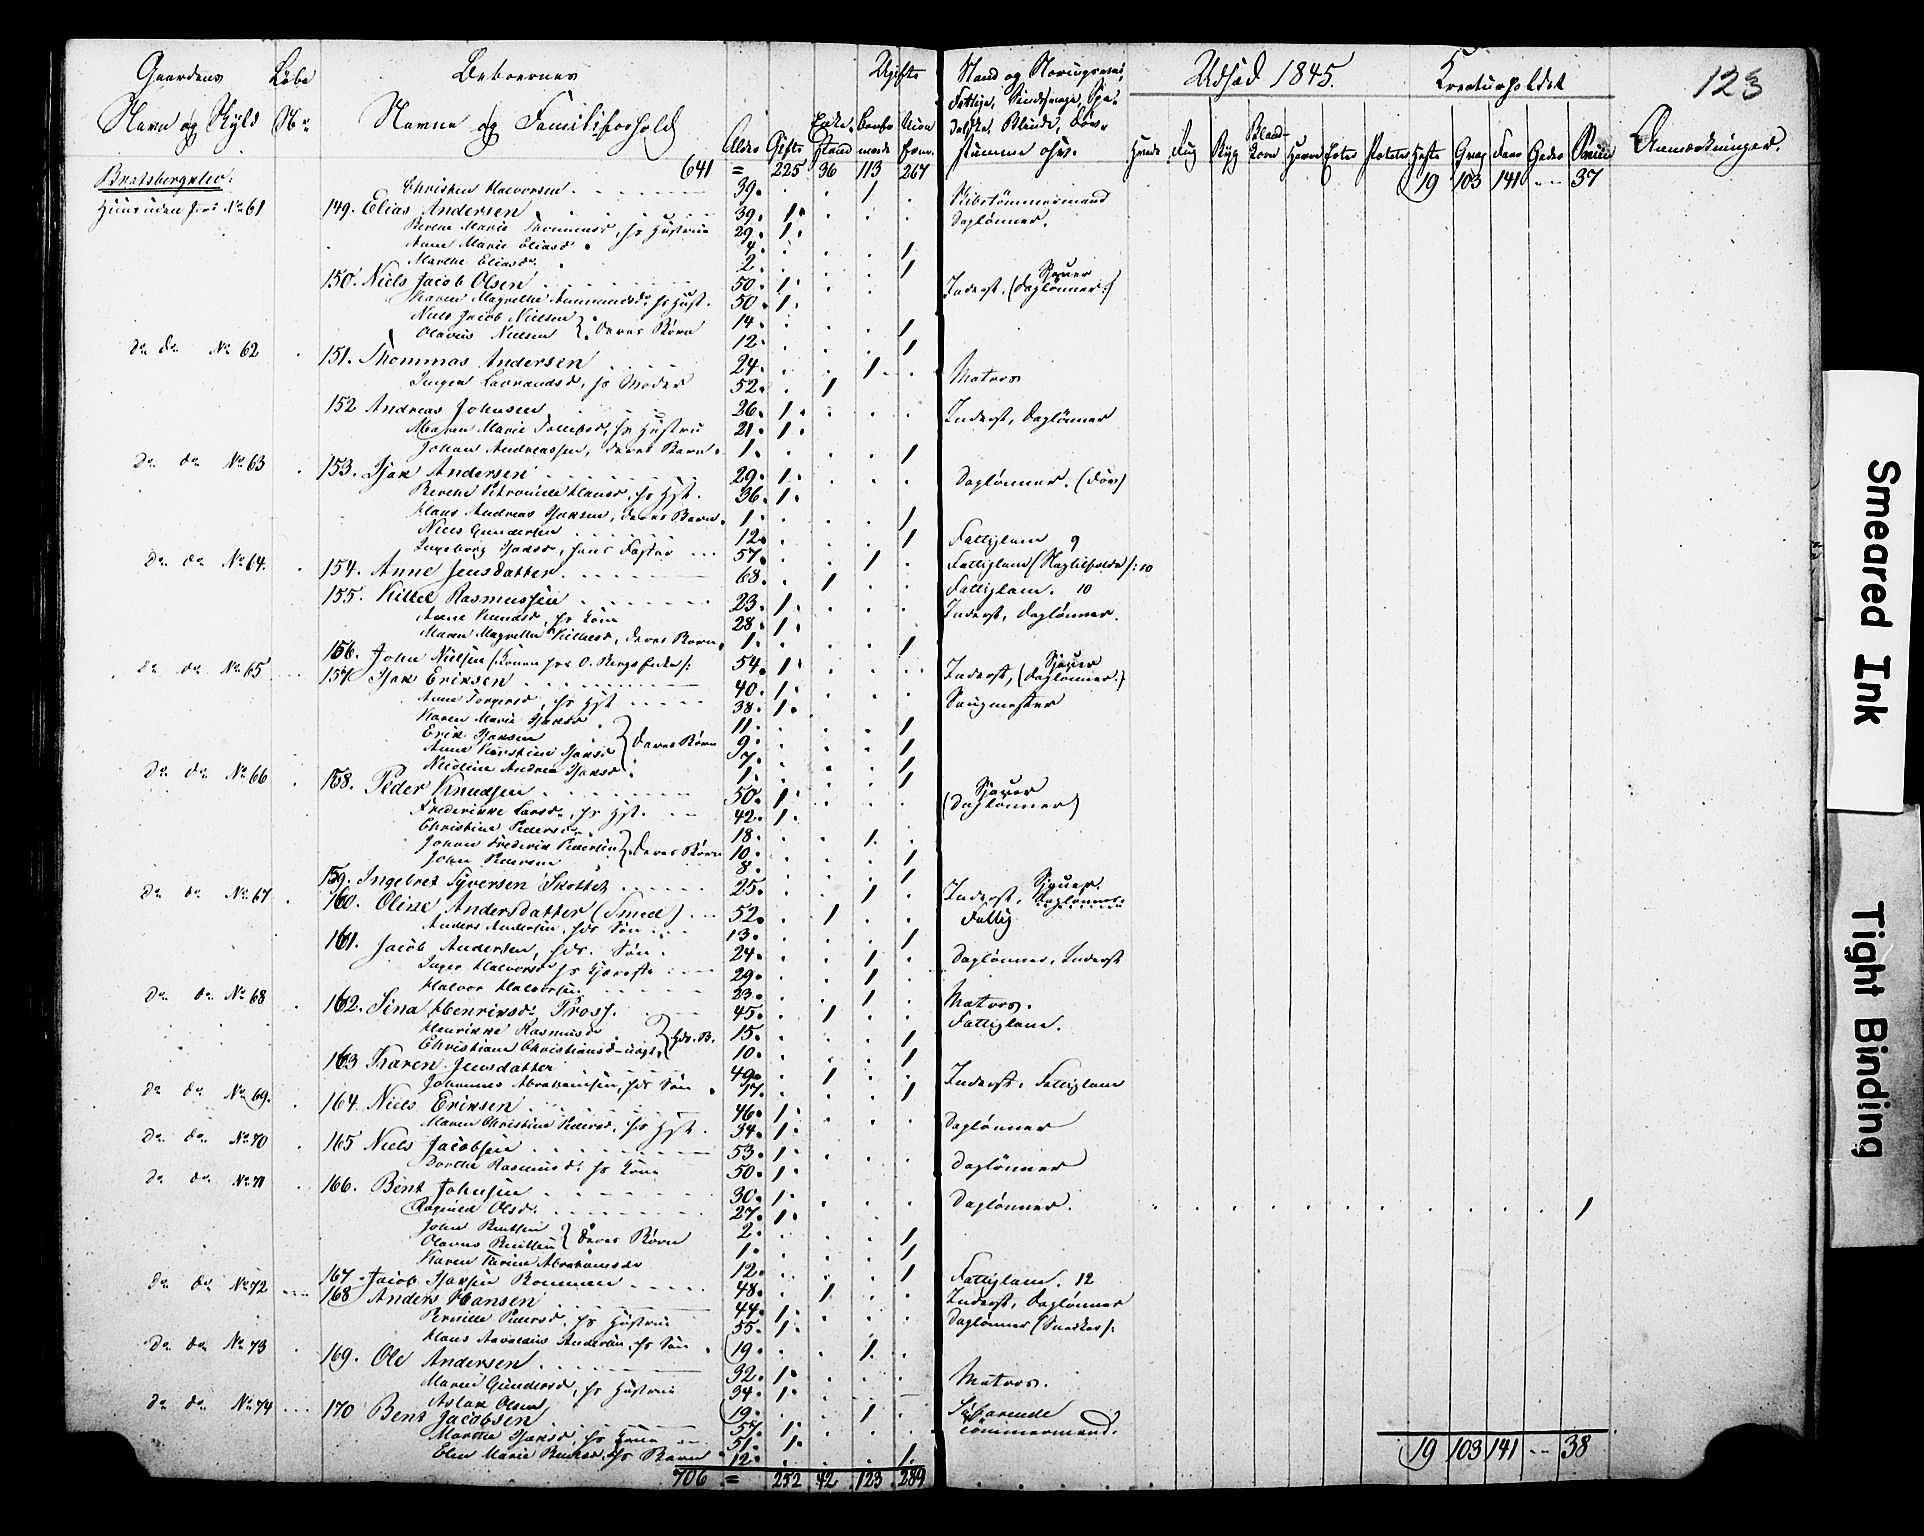 Gaardens Løbe Beboernes Ugifte Stand og Næringsvei, Udsæd 1845. Kreaturholdet 123
Navn og Skyld No Navne og Familieforhold Alder Gifte Enke- stand Havre Erter Poteter Heste Faar Geder Anmærkninger.
641 = 225 36 113 267 19 103 141 -- 37
Bratsbergklev:
Christen Halvorsen 39. 1 Skibstømmermand
Huus uden Jord No 61 149. Elias Andersen 39. 1. Daglønner.
hs Hustrue 29. 1.
Anne Marie Eliasd. 4. 1
Marthe Eliasd. 2. 1
150. Niels Jacob Olsen 50. 1. Inderst. (Daglønner.) Sjouer
Maren Magrethe Ammundsdr. hs Hust. 50. 1.
Niels Jacob Nielsen } Deres Børn 14. 1
Olavus Nielsen 12. 1
Do do No 62 151. Thommas Andersen 24. 1. Matros
Inger Lavrandsd. hs Moder 52. 1
152 Andreas Johnsen 26. 1. Inderst, Daglønner
Maren Marie hs Hustru 21. 1.
Johan Andreassen, deres Barn. 1. 1
Do do No 63 153. Isak Andersen 29. 1. Daglønner. (døv)
Berthe Petronille Hansd. hs Hst. 36. 1.
Hans Andreas Isaksen, deres Barn. 1. 1
Niels Gundersen 12. 1 Fattiglem 9
Ingeborg Isaksd, hans Faster 57. 1 Fattiglem 10
Do do No 64. 154. Anne Jensdatter 68. 1 Fattiglem. 10
155. Kittel Rasmussen 23. 1. Inderst, Daglønner.
Anne Knudsd, hs Kone 28. 1.
Maren Magrethe Kittelsd, deres Barn. 1. 1
156. John Nielsen 54. 1. Inderst, (Daglønner.) Sjouer
Do do No 65 157 Isak Eriksen 40. 1. Saugmester
Anne Torgersd, hs Hst 38. 1.
Karen Marie Isaksd 11. 1
Erik Isaksen } deres Børn 9. 1
Anne Kirstine Isaksd 7. 1
Nicoline Andrea Isaksd. 1. 1
Do do No 66 158. Peder Knudsen 50. 1. (Daglønner) Sjouer
Frederikke Larsd., hs Hst. 42. 1.
Christine Pedersd. 18. 1.
Johan Frederik Pedersen } deres Børn 10. 1
John Pedersen 8. 1
159. Ingebret Syversen Skottet 25. 1 Inderst, Daglønner. Sjouer.
Do do No 67 160. Oline Andersdatter (Smed) 52. 1 Fattig
Anders Andersen, hds Søn 13. 1
161. Jacob Andersen, hds. Søn. 24. 1 Daglønner, Inderst
Inger Halvorsd hs Kjæreste 29. 1
Halvor Halvorsen 23. 1 Matros.
Do do No 68 162. Sina Henriksd. Tross. 45. 1 Fattiglem.
Henrikke Rasmusd } hds. B. 15. 1
Christiane Christiansd 10. 1
163 Karen Jensdatter 49. 1 Inderst, Fattiglem
Johannes Abrahamsen, hds Søn 17. 1
Do do No 69. 164. Niels Eriksen 46. 1. Daglønner
Maren Christine Pedersd, hs Hst. 34. 1.
Do do No 70 165 Niels Jacobsen 53. 1. Daglønner
Dorthe Rasmusd. hs Kone 50. 1.
Do do No 71 166. Bent Johnsen 30. 1. Daglønner. 1
Ragnild Olsd. 27. 1.
John Bentsen } deres Børn 2. 1
Olavus Bentsen 1. 1
Karen Abrahamsdr 12. 1 Fattiglem. 12
167. Jacob Isaksen 48. 1 Inderst, Daglønner
Do do No 72 168 Anders Hansen 44. 1. Daglønner (Snedker).
Pernille Pedersd, hs Hustrue 55. 1.
Hans Andersen, hs Søn 19. 1.
Do do No 73 169. Ole Andersen 32. 1. Matros.
Maren Gundersd, hs Hustrue 34. 1.
Aslak Olsen 19. 1 Søfarende
Do do No 74 170 Bent Jacobsen 57. 1. Tømmermand.
Marthe Isaksd, hs Kone 51. 1.
Elen Marie Bentsd. hs Barn 12. 1.
706 = 252 42 123 289 19 103 141 -- 38
Smeared Ink
Tight Binding